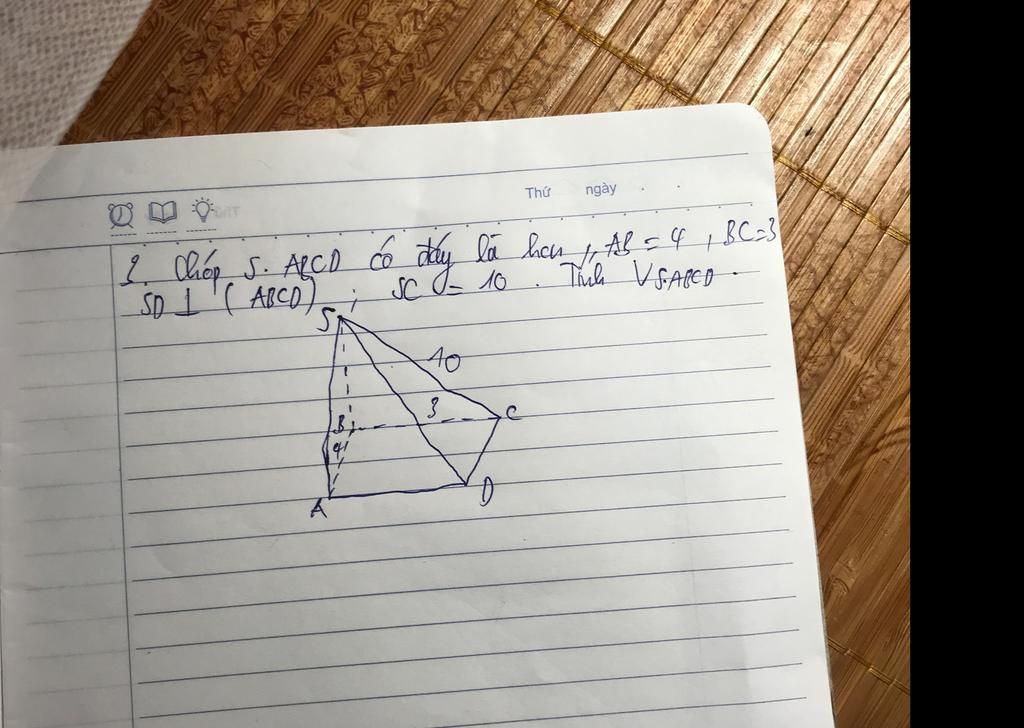 Thứ ngày
1. Chóp S.ABCD có đáy là hcn, AB = 4, BC=3
SD ⊥ (ABCD); SC = 10. Tính VS.ABCD.
S
10
B
3
C
4
A
D